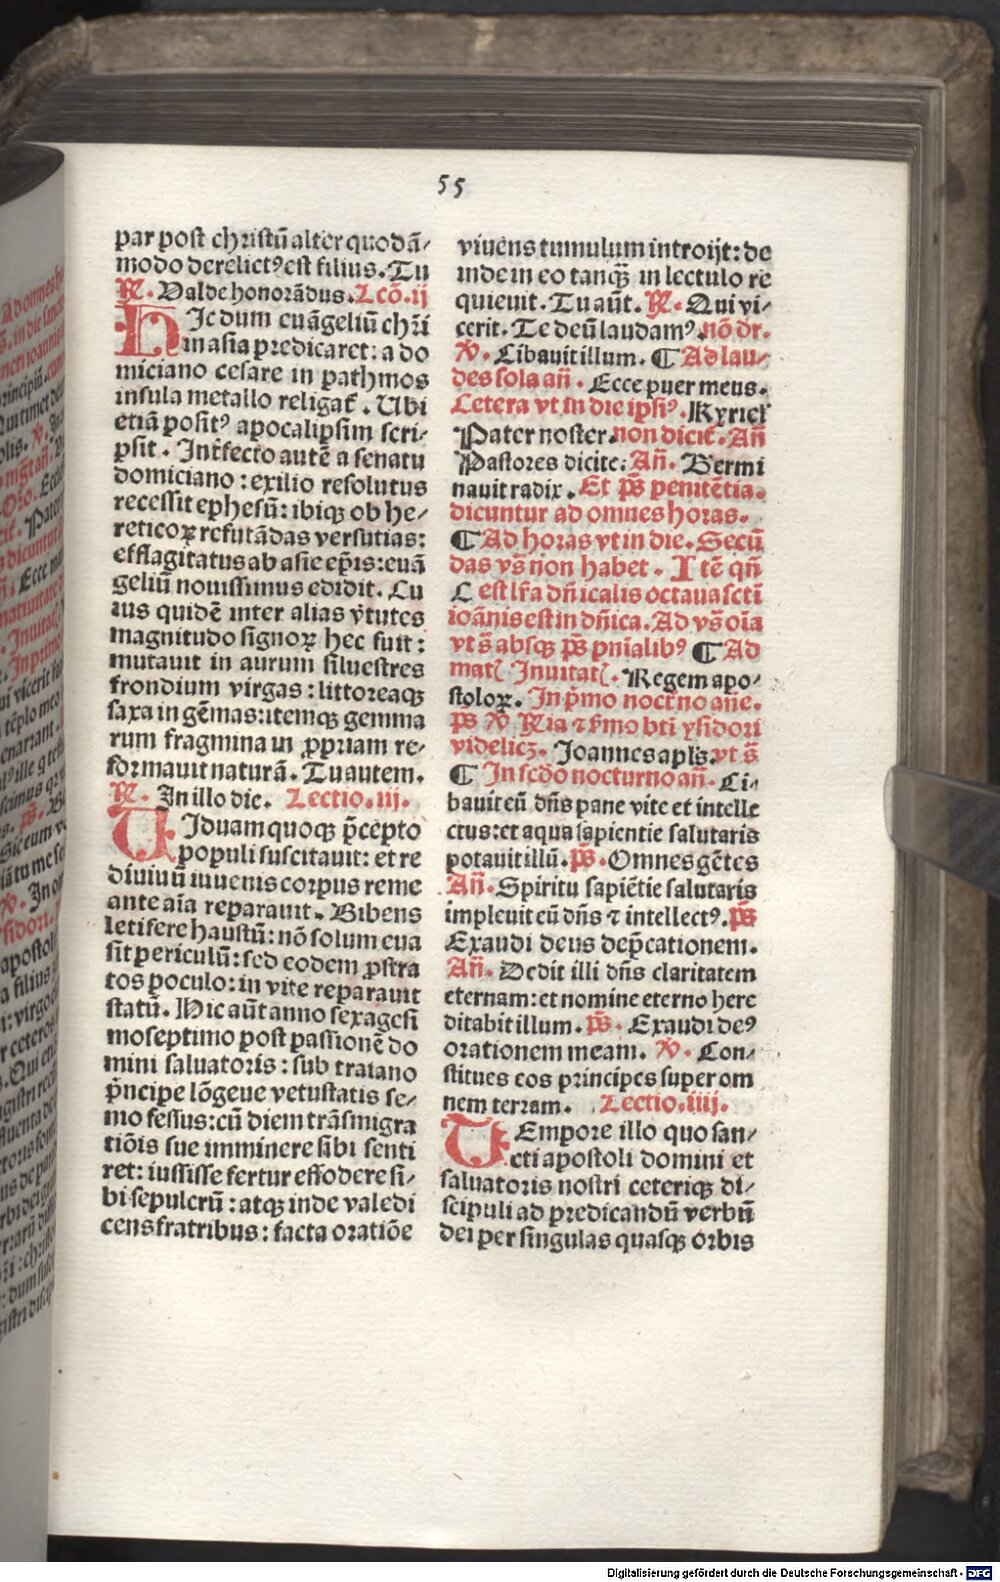 55
par post christū alter quodā/
modo derelictꝰ est filius. Tu
℟. Valde honorādus. Lcō. ij
HIc dum euāgeliū chri
in asia predicaret: a do
miciano cesare in pathmos
insula metallo religat᷑. Ubi
etiā positꝰ apocalipsim scri/
psit. Int̄fecto autē a senatu
domiciano: exilio resolutus
recessit ephesū: ibiqꝫ ob he/
reticoꝝ refutādas versutias:
efflagitatus ab asie ep̄is: euā
geliū nouissimus edidit. Cu
ius quidē inter alias v̄tutes
magnitudo signoꝝ hec fuit:
mutauit in aurum siluestres
frondium virgas: littoreaqꝫ
saxa in gēmas: itemqꝫ gemma
rum fragmina in ꝓpriam re/
formauit naturā. Tu autem.
℟. In illo die. Lectio. iij.
UIduam quoqꝫ p̄cepto
populi suscitauit: et re
diuiuū iuuenis corpus reme
ante aīa reparauit. Bibens
letifere haustū: nō solum eua
sit periculū: sed eodem ꝓstra
tos poculo: in vite reparauit
statū. Hic aūt anno sexagesi
moseptimo post passionē do
mini saluatoris: sub traiano
p̄ncipe lōgeue vetustatis se/
mo fessus: cū diem trāsmigra
tiōis sue imminere sibi senti
ret: iussisse fertur effodere si/
bi sepulcrū: atqꝫ inde valedi
cens fratribus: facta oratiōe
viuens tumulum introijt: de
inde in eo tanqꝫ̄ in lectulo re
quieuit. Tu aūt. ℟. Qui vi/
cerit. Te deū laudamꝰ. nō dr.
℣. Cibauit illum. ¶ Ad lau/
des sola an̄. Ecce puer meus.
Cetera vt in die ipsiꝰ. Kyriel᷑
Pater noster. non dicit᷑. An̄
Pastores dicite: An̄. Germi
nauit radix. Et p̄s penitētia.
dicuntur ad omnes horas.
¶ Ad horas vt in die. Secū
das v̄s non habet. Itē qn̄
C est lr̄a dn̄icalis octaua sct̄i
ioānis est in dn̄ica. Ad v̄s oīa
vt s̄ absqꝫ p̄s pn̄ialibꝰ ¶ Ad
mat᷑ Inuitat᷑. Regem apo/
stoloꝝ. In p̄mo nocrno ane.
p̄s ℣ Ria ⁊ s̄mo bt̄i ysidori
videlicꝫ. Joannes apl̄s. vt s̄
¶ In scd̄o nocturno an̄. Ci/
bauit eū dn̄s pane vite et intelle
ctus: et aqua sapientie salutaris
potauit illū. p̄s. Omnes gētes
An̄. Spiritu sapiētie salutaris
impleuit eū dn̄s ⁊ intellectꝰ. p̄s
Exaudi deus dep̄cationem.
An̄. Dedit illi dn̄s claritatem
eternam: et nomine eterno here
ditabit illum. p̄s. Exaudi deꝰ
orationem meam. ℣. Con/
stitues eos principes super om
nem terram. Lectio. iiij.
TEmpore illo quo san/
cti apostoli domini et
saluatoris nostri ceteriqꝫ di/
scipuli ad predicandū verbū
dei per singulas quasqꝫ orbis
Digitalisierung gefördert durch die Deutsche Forschungsgemeinschaft - DFG